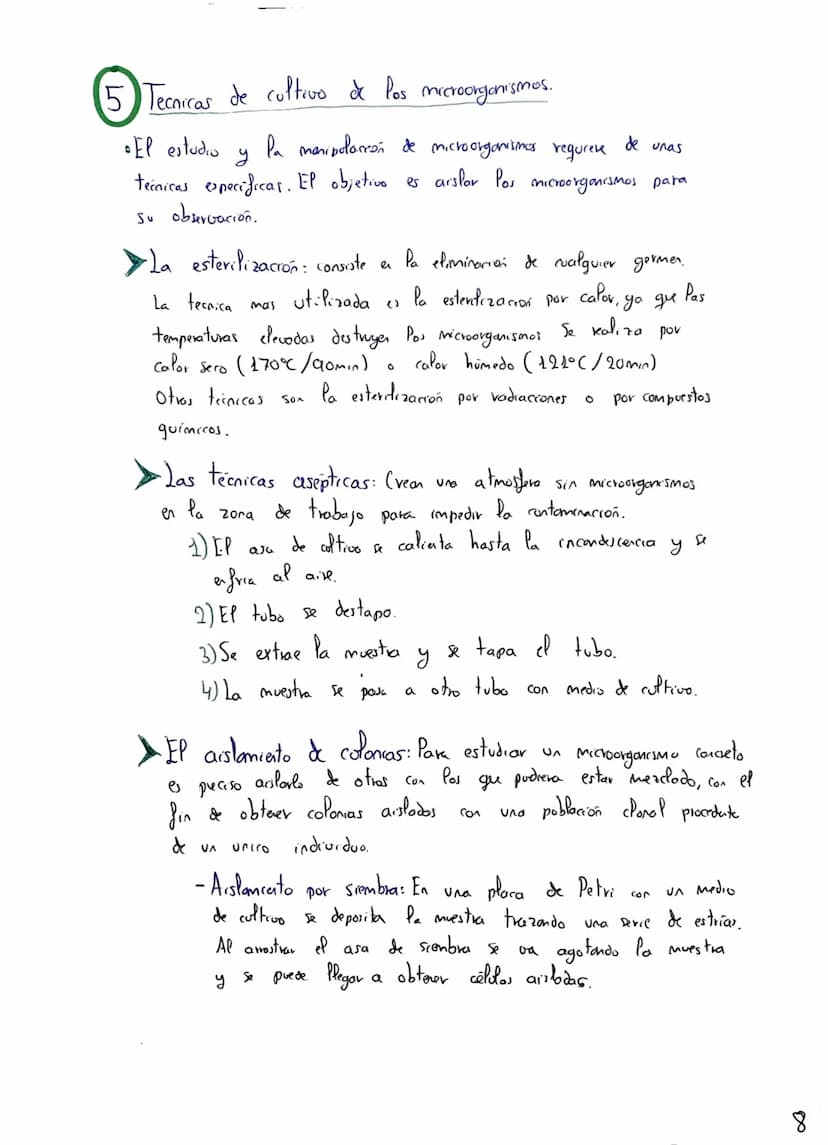 5 Tecnicas de cultivo de los microorganismos.
• El estudio y la manipulación de microorganismos requiere de unas
técnicas específicas. El objetivo es aislar los microorganismos para
su observación.
➤ La esterilización: consiste en la eliminación de cualquier germen.
La tecnica mas utilizada es la esterilización por calor, ya que las
temperaturas elevadas destruyen los microorganismos Se realiza por
calor seco (170ºC/90min) o calor húmedo (121ºC/20min)
Otras técnicas son la esterilización por radiacciones o por compuestos
químicos.
➤ Las técnicas asépticas: Crean una atmosfera sin microorganismos
en la zona de trabajo para impedir la contaminación.
1) El asa de cultivo se calienta hasta la incandescencia y se
enfria al aire.
2) El tubo se destapa.
3) Se extrae la muestra y se tapa el tubo.
4) La muestra se pasa a otro tubo con medio de cultivo.
➤ El aislamiento de colonias: Para estudiar un microorganismo concreto
es preciso aislarlo de otros con los que pudiera estar mezclado, con el
fin de obtener colonias aisladas con una población clonal procedente
de un unico individuo.
- Aislamiento por siembra: En una placa de Petri con un medio
de cultivo se deposita la muestra trazando una serie de estrías.
Al arrastrar el asa de siembra se va agotando la muestra
y se puede llegar a obtener células aisladas.
8